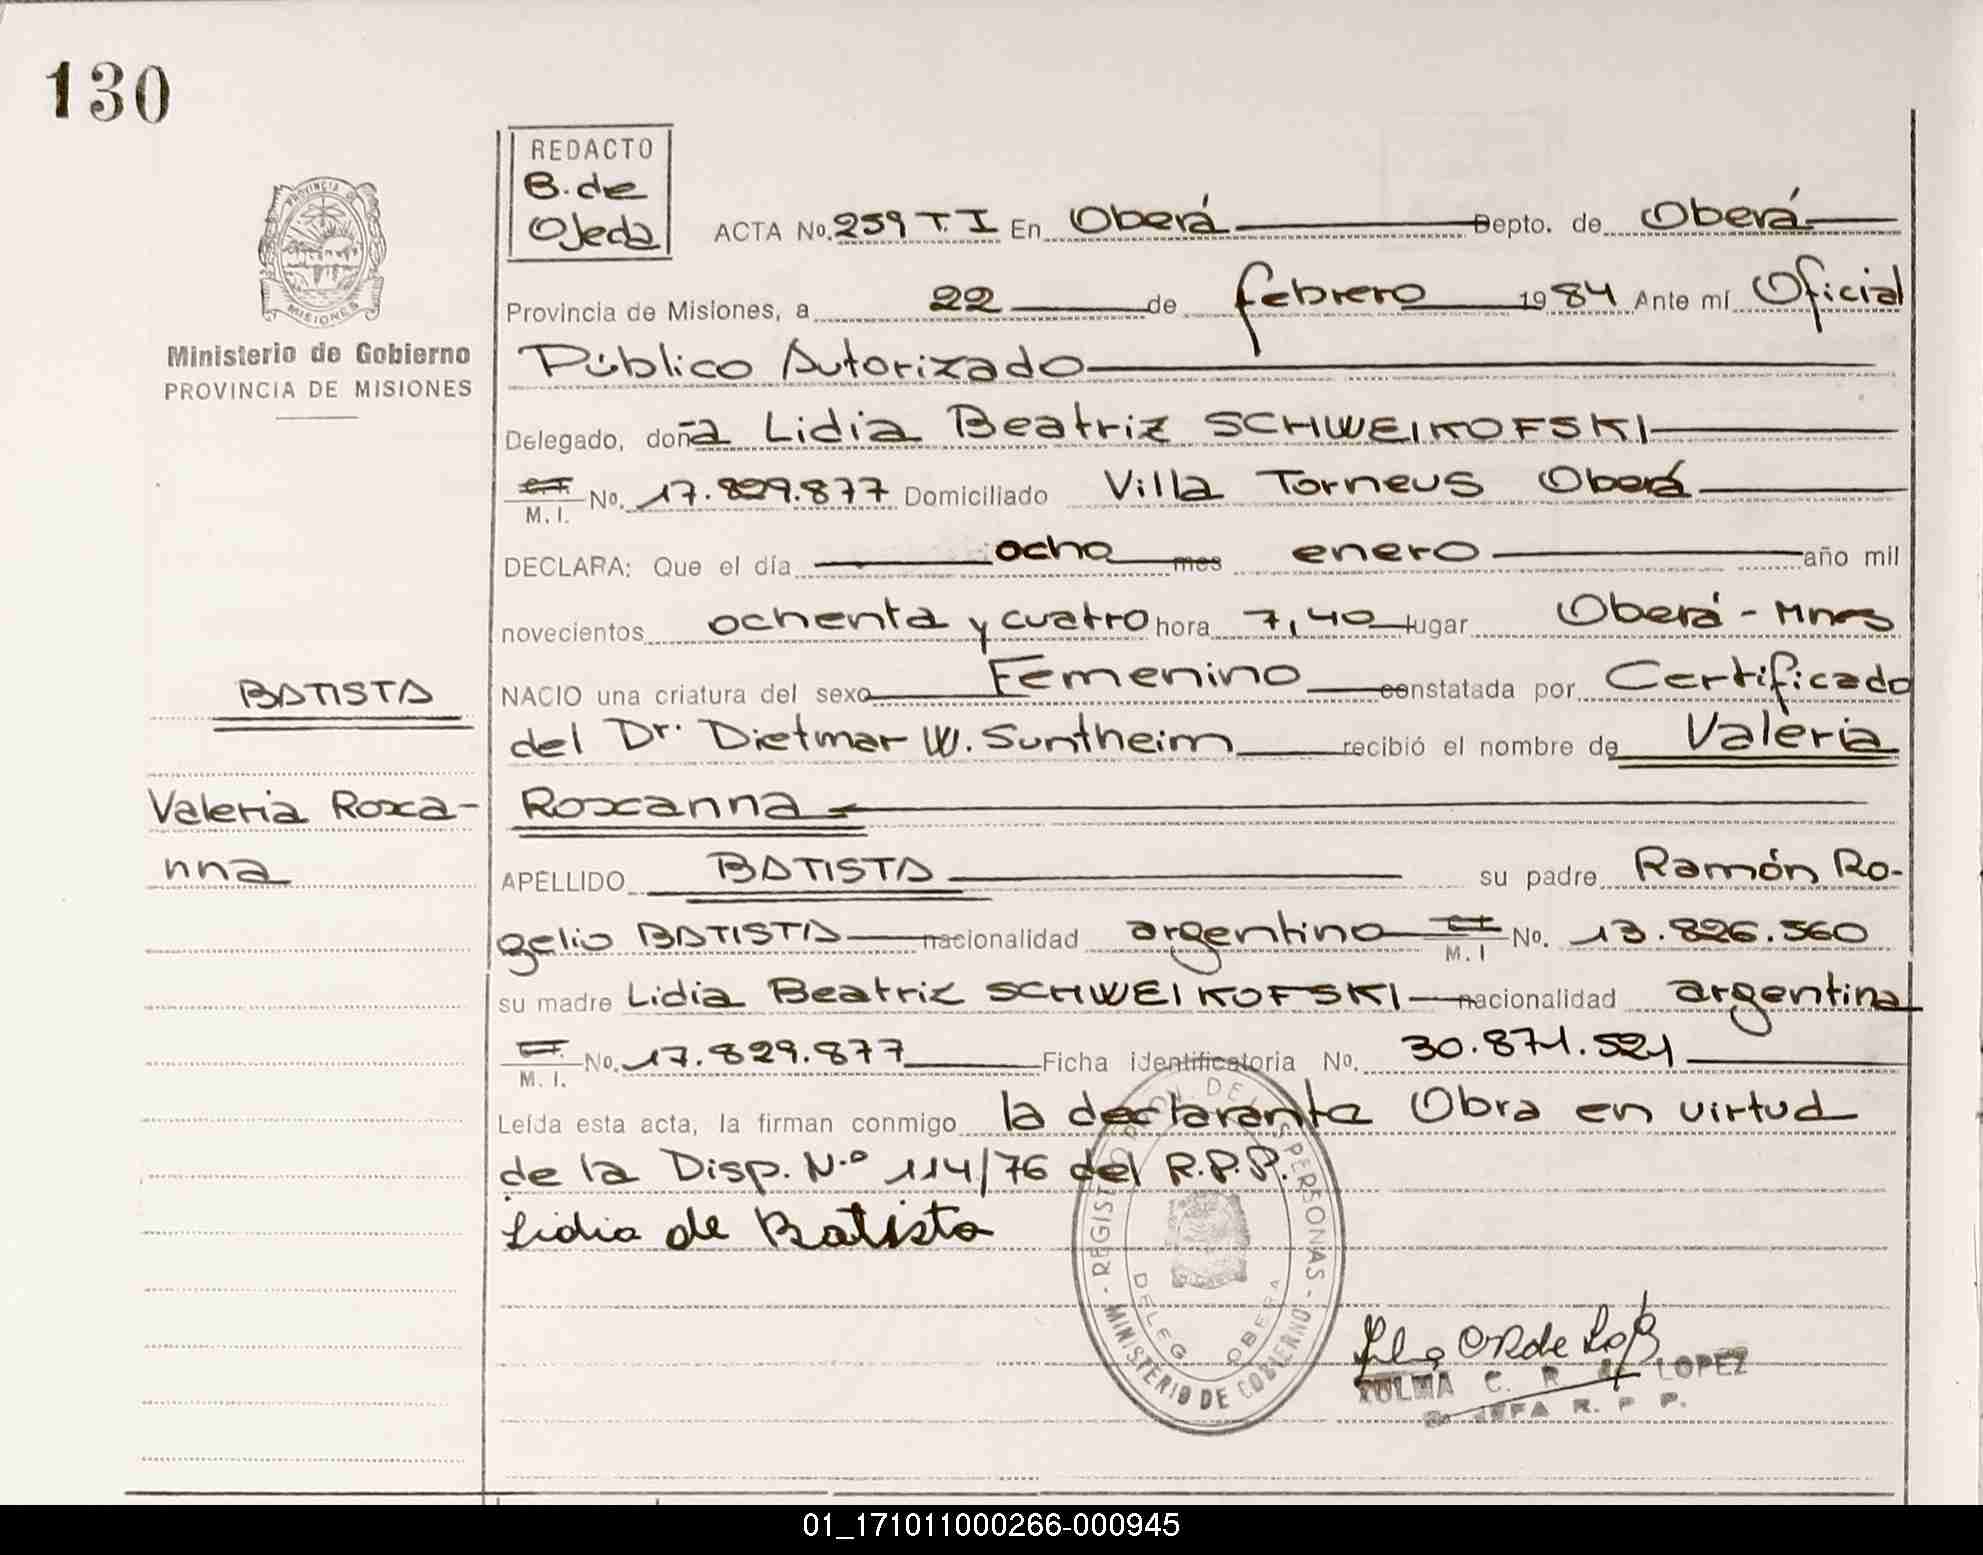 130
REDACTO
B. de
Ojeda
ACTA No. 259 T. I En Oberá Depto. de Oberá
Provincia de Misiones, a 22 de febrero 19 84 Ante mí Oficial
Ministerio de Gobierno
PROVINCIA DE MISIONES
Público Autorizado
Delegado, doña Lidia Beatriz SCHWEIKOFSKI
M. I. No. 17.829.877 Domiciliado Villa Torneus Oberá
DECLARA: Que el día ocho mes enero año mil
novecientos ochenta y cuatro hora 7,40 lugar Oberá - Mnes
BATISTA
NACIO una criatura del sexo Femenino constatada por Certificado
del Dr. Dietmar W. Suntheim recibió el nombre de Valeria
Valeria Roxa-
nna
Roxanna
APELLIDO BATISTA su padre Ramón Ro-
gelio BATISTA nacionalidad argentino M. I No. 13.826.560
su madre Lidia Beatriz SCHWEIKOFSKI nacionalidad argentina
M. I. No. 17.829.877 Ficha identificatoria No. 30.871.521
Leída esta acta, la firman conmigo la declarante Obra en virtud
de la Disp. N.º 114/76 del R.P.P.
Lidia de Batista
REGISTRO PROV. DE LAS PERSONAS - MINISTERIO DE GOBIERNO
DELEG OBERA
C. R. de LOPEZ
JEFA R. P. P.
01_171011000266-000945